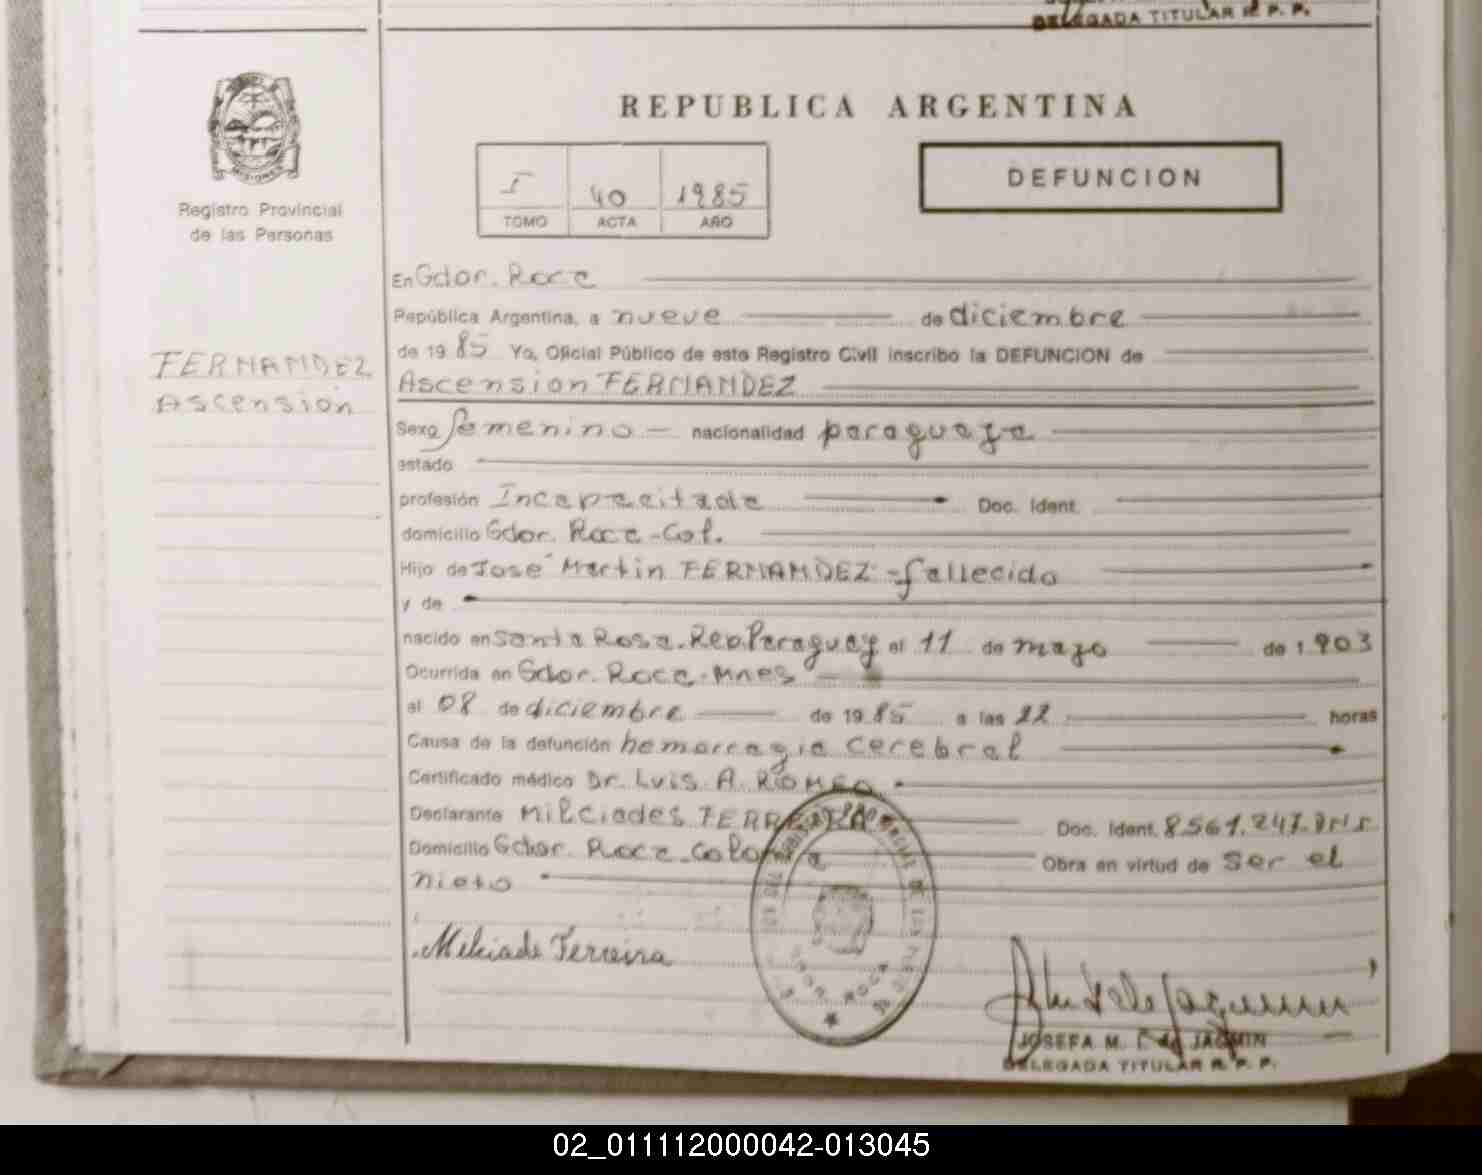 DELEGADA TITULAR R. P. P.
MISIONES
Registro Provincial
de las Personas
REPUBLICA ARGENTINA
I 40 1985
TOMO ACTA AÑO
DEFUNCION
FERNANDEZ
Ascensión
En Gdor. Roca
República Argentina, a nueve de diciembre
de 1985 Yo, Oficial Público de este Registro Civil inscribo la DEFUNCION de
Ascension FERNANDEZ
Sexo femenino — nacionalidad paraguaya
estado
profesión Incapacitada Doc. Ident.
domicilio Gdor. Roca - Col.
Hijo de José Martin FERNANDEZ - fallecido
y de
nacido en Santa Rosa. Rep. Paraguay el 11 de mayo de 1.903
Ocurrida en Gdor. Roca - Mnes
el 08 de diciembre de 1985 a las 22 horas
Causa de la defunción hemorragia cerebral
Certificado médico Dr. Luis A. ROMEO
Declarante Milciades FERREIRA Doc. Ident. 8.561.247.
Domicilio Gdor. Roca - Colonia Obra en virtud de Ser el
nieto
Melciade Ferreira
GDOR ROCA
JOSEFA M. de JACMIN
DELEGADA TITULAR R. P. P.
02_011112000042-013045